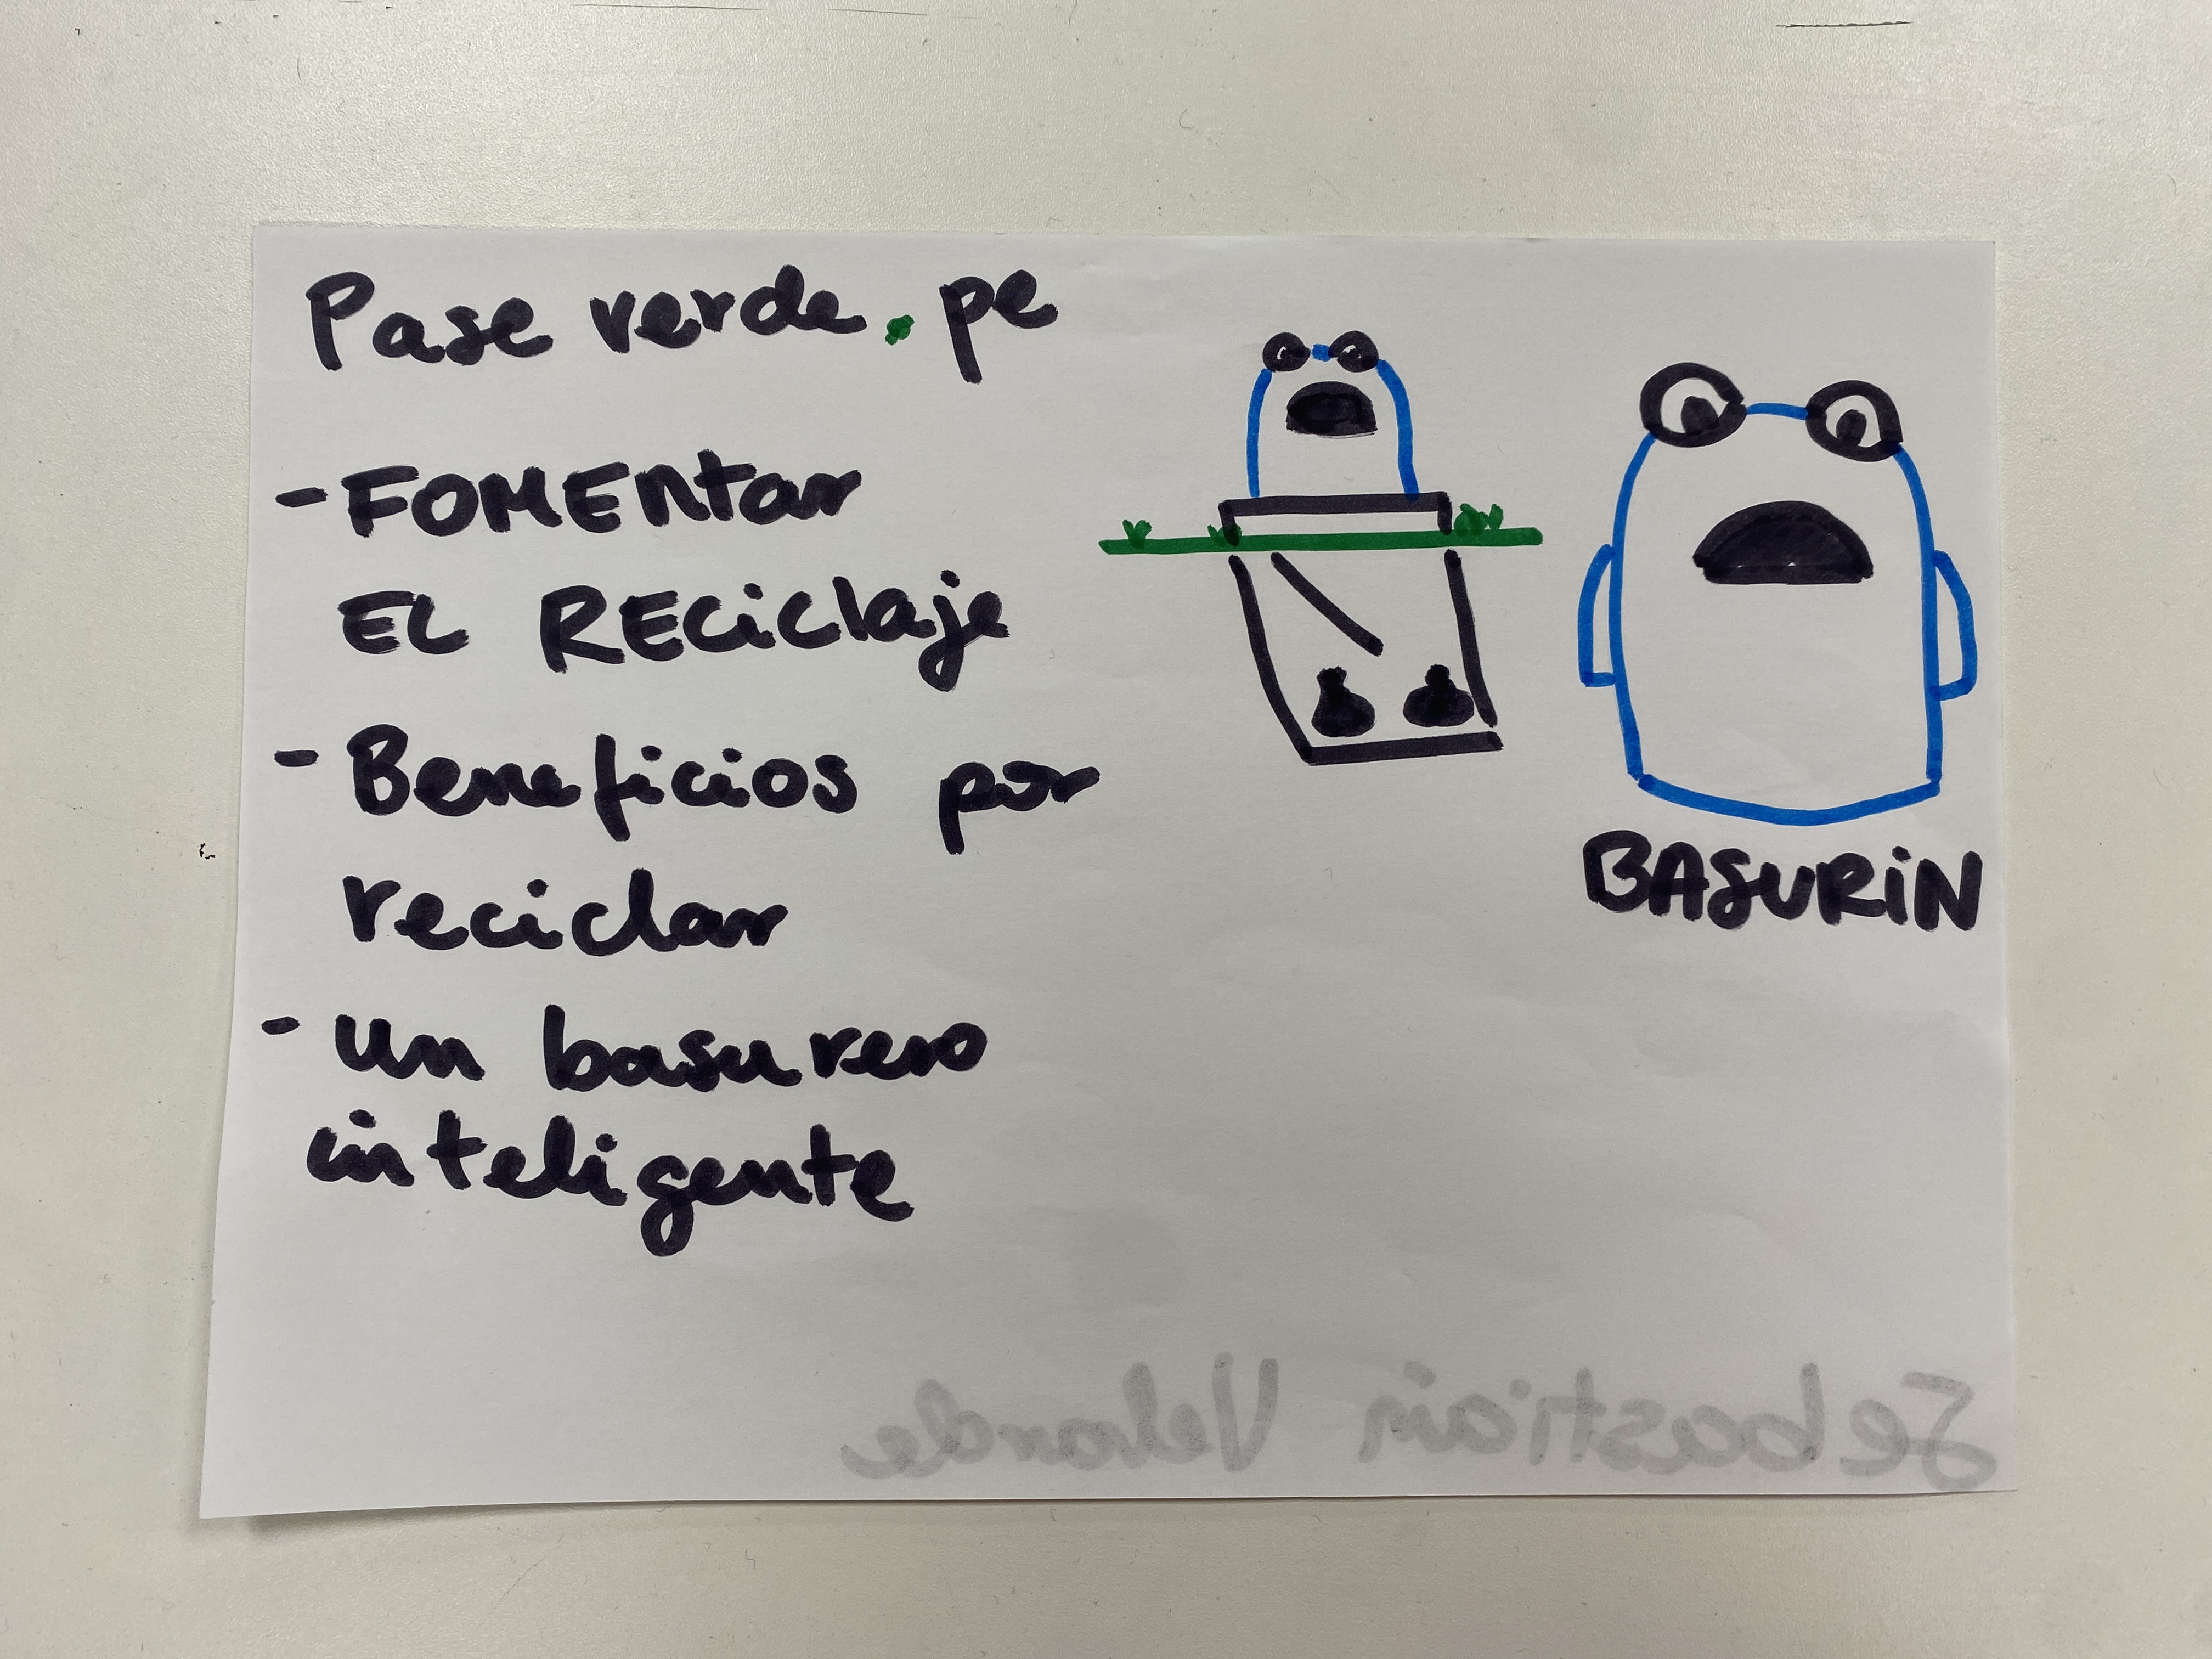 Pase verde.pe
- FOMENtar
EL RECiclaje
- Beneficios por
reciclar
- un basurero
inteligente
BASURiN
Sebastián Velarde